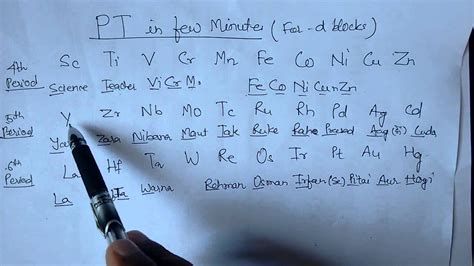 PT in few Minutes (For - d blocks)
4th Period Sc Ti V Cr Mn Fe Co Ni Cu Zn
Science Teacher Vi Cr M. Fe Co Ni Cun Zn
5th Period Y Zr Nb Mo Tc Ru Rh Pd Ag Cd
Zara Nibana Maut Tak Ruke Ag
6th Period La Hf Ta W Re Os Ir Pt Au Hg
La Ta Warna Rehman Osman Irfan (Se) Pitai Aur